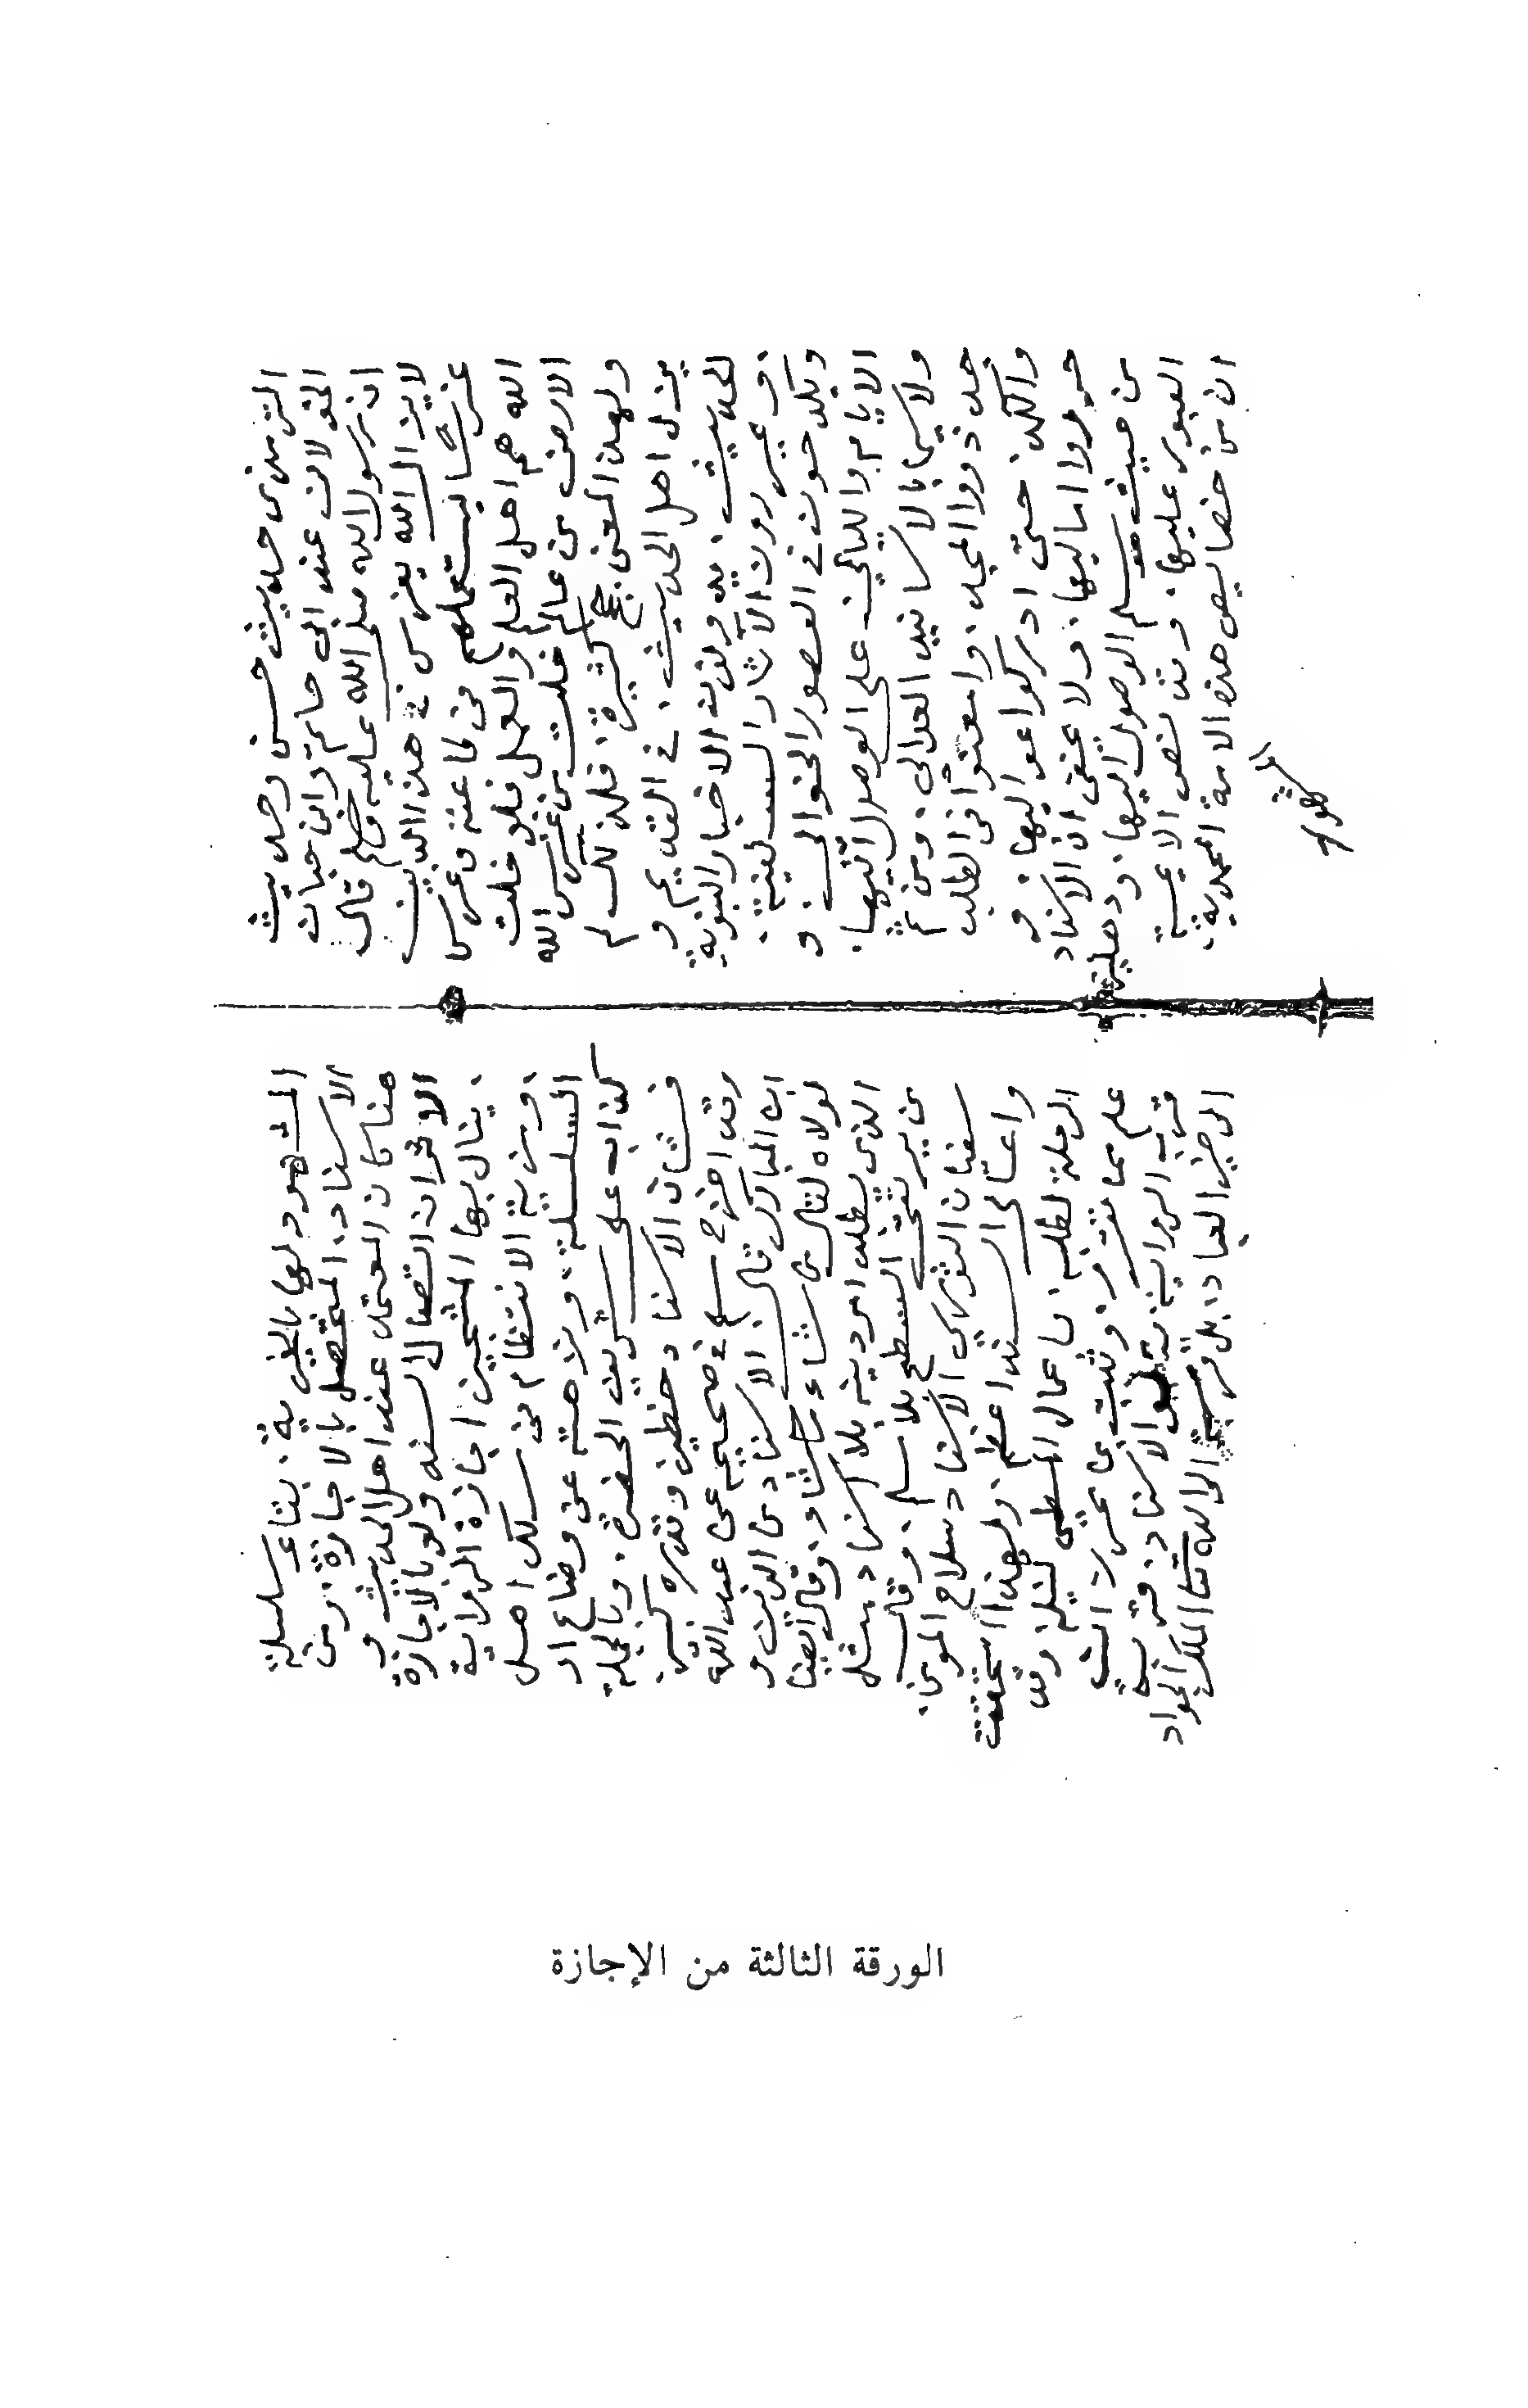 الترمذي حديث حسن وحديث
الخولاني عند ابي حاتم وابن حبان
ان رسول الله صلى الله عليه وسلم قال
لا يزال الله يغرس في هذا الدين
غرسا يستعملهم في طاعته وغرس
الله هم اهل العلم والعمل فلو خلت
الارض من عالم خلت من غرس الله
ولهذا المعنى حجج كثيرة. فلذلك لم
يزل اهل الحديث. في القديم و
الحديث. يدونون الاخبار النبوية
الآثار السنية.
ويكدحون في العصور الخوالي. و
الايام والليالي على الوصول اليها.
ولا سيما بالاسانيد العوالي. ومن ثم
جد ذووا المجد. وامعنوا في الطلب
والكد. حتى ادركوا عواليها. و
حرروا اماليها. ولا يخفى ان الاسناد
من حيث سلم الوصول اليها. ودهليز
العبور عليها. وقد نص الايمة
ان من خصايص هذه الامة المحمدية.
المشهود
المشهود لها بالخيرية. بقاء سلسلة
الاسناد. المتصل بالاجازة. ومن
هنا كان المعتمد عند اهل الحديث و
اتصال السند ولو بالاجازة
. ينال بها اجازة الرواية
. ومزية الانتظام في سلك اهل
السلسلة. ونزاهته عن وضاع او
كذاب على شريف الحضرة. وبالجملة
فشان الاسناد خطير وقدره كبير
وقد اخرج مسلم في صحيحه عن عبد الله
ابن المبارك قال. الاسناد من الدين و
لولاه لقال من شاء ما شاء. وقال ايضا
الذي يطلب امر دينه بلا اسناد مثل
من يرتقي السطح بلا سلم. وقال
سفيان الثوري الاسناد سلاح المومن.
السند اعظم. ولهذا استحقت
الرحلة لطلبه. واعمال المطي لنيله. وقد
علم مما تقرر. وثبت مما تحرر. ان
قرب الرواية من علو الاسناد. قربة
الى خير العباد. بل قربة الى الله تعالى الملك الجواد
الورقة الثالثة من الإجازة